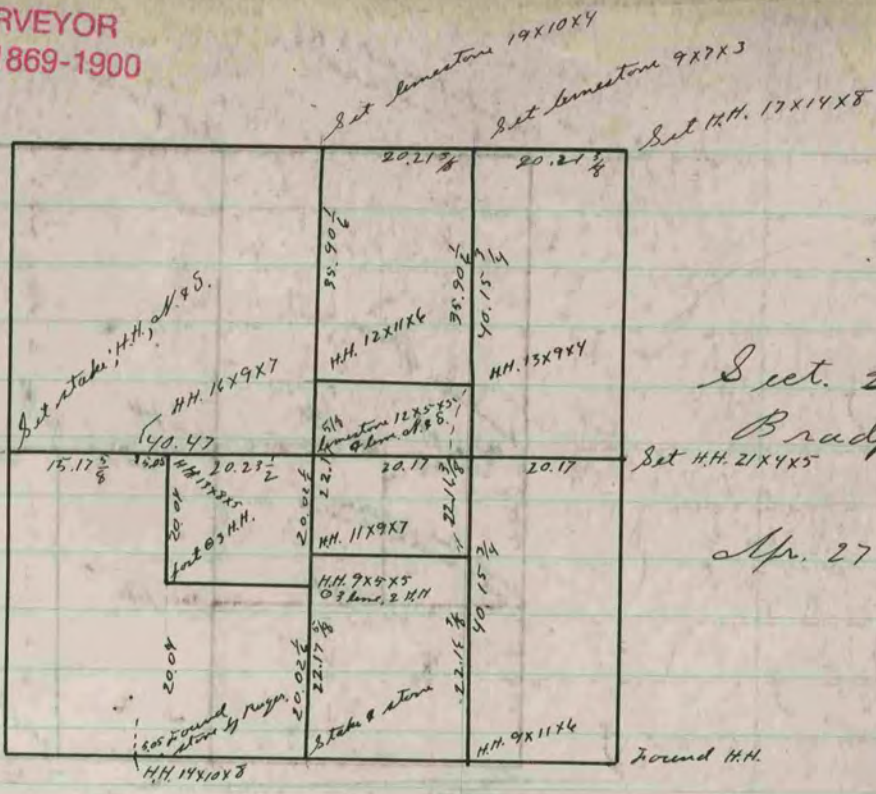 RVEYOR
1869-1900
Set limestone 19x10x4
Set limestone 9x7x3
Set H.H. 17x14x8
20.21 5/8
20.21 5/8
35.90 1/6
35.90 1/6
40.15 3/4
Set stake, H.H., N. & S.
H.H. 16x9x7
H.H. 12x11x6
H.H. 13x9x4
Sect. 2
Brad
limestone 12x5x5
N. & S.
40.47
15.17 5/8
5.05
20.23 1/2
22.1
20.17
20.17
Set H.H. 21x4x5
H.H. 13x8x5
20.04
@ 3 H.H.
20.02 1/2
H.H. 11x9x7
22.16 3/8
Apr. 27
H.H. 9x5x5
@ 3 lime, 2 H.H
40.15 3/4
20.04
20.02 1/2
22.17 5/8
22.15 3/8
5.05 Found
stone by
Stake & stone
H.H. 9x11x6
H.H. 14x10x8
Found H.H.